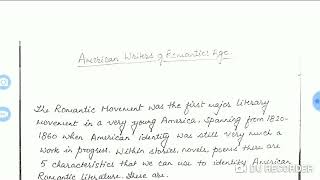 American Writers of Romantic Age.
The Romantic Movement was the first major literary
movement in a very young America, spanning from 1820-
1860 when American identity was still very much a
work in progress. Within stories, novels, poems there are
5 characteristics that we can use to identify American
Romantic literature. These are.
DU RECORDER